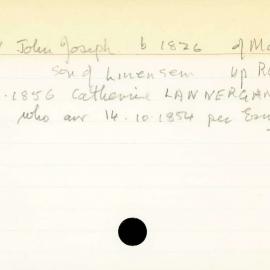 John Joseph b 1826 of Ma
son of up R
1856 Catherine LANNERGAN
who arr 14.10.1854 per Em